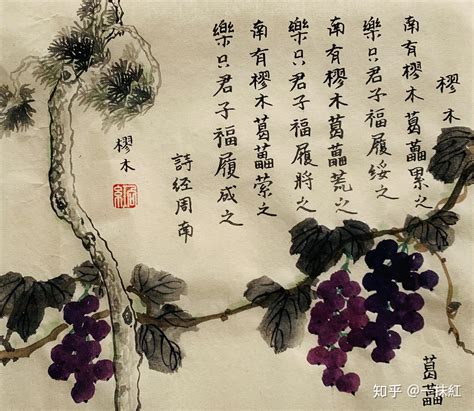 樛木
南有樛木葛藟累之
樂只君子福履綏之
南有樛木葛藟荒之
樂只君子福履將之
南有樛木葛藟萦之
樂只君子福履成之
詩经周南
樛木
葛藟
知乎 @一抹紅